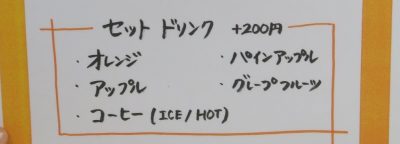 セット ドリンク +200円
・オレンジ ・パインアップル
・アップル ・グレープフルーツ
・コーヒー (ICE/HOT)